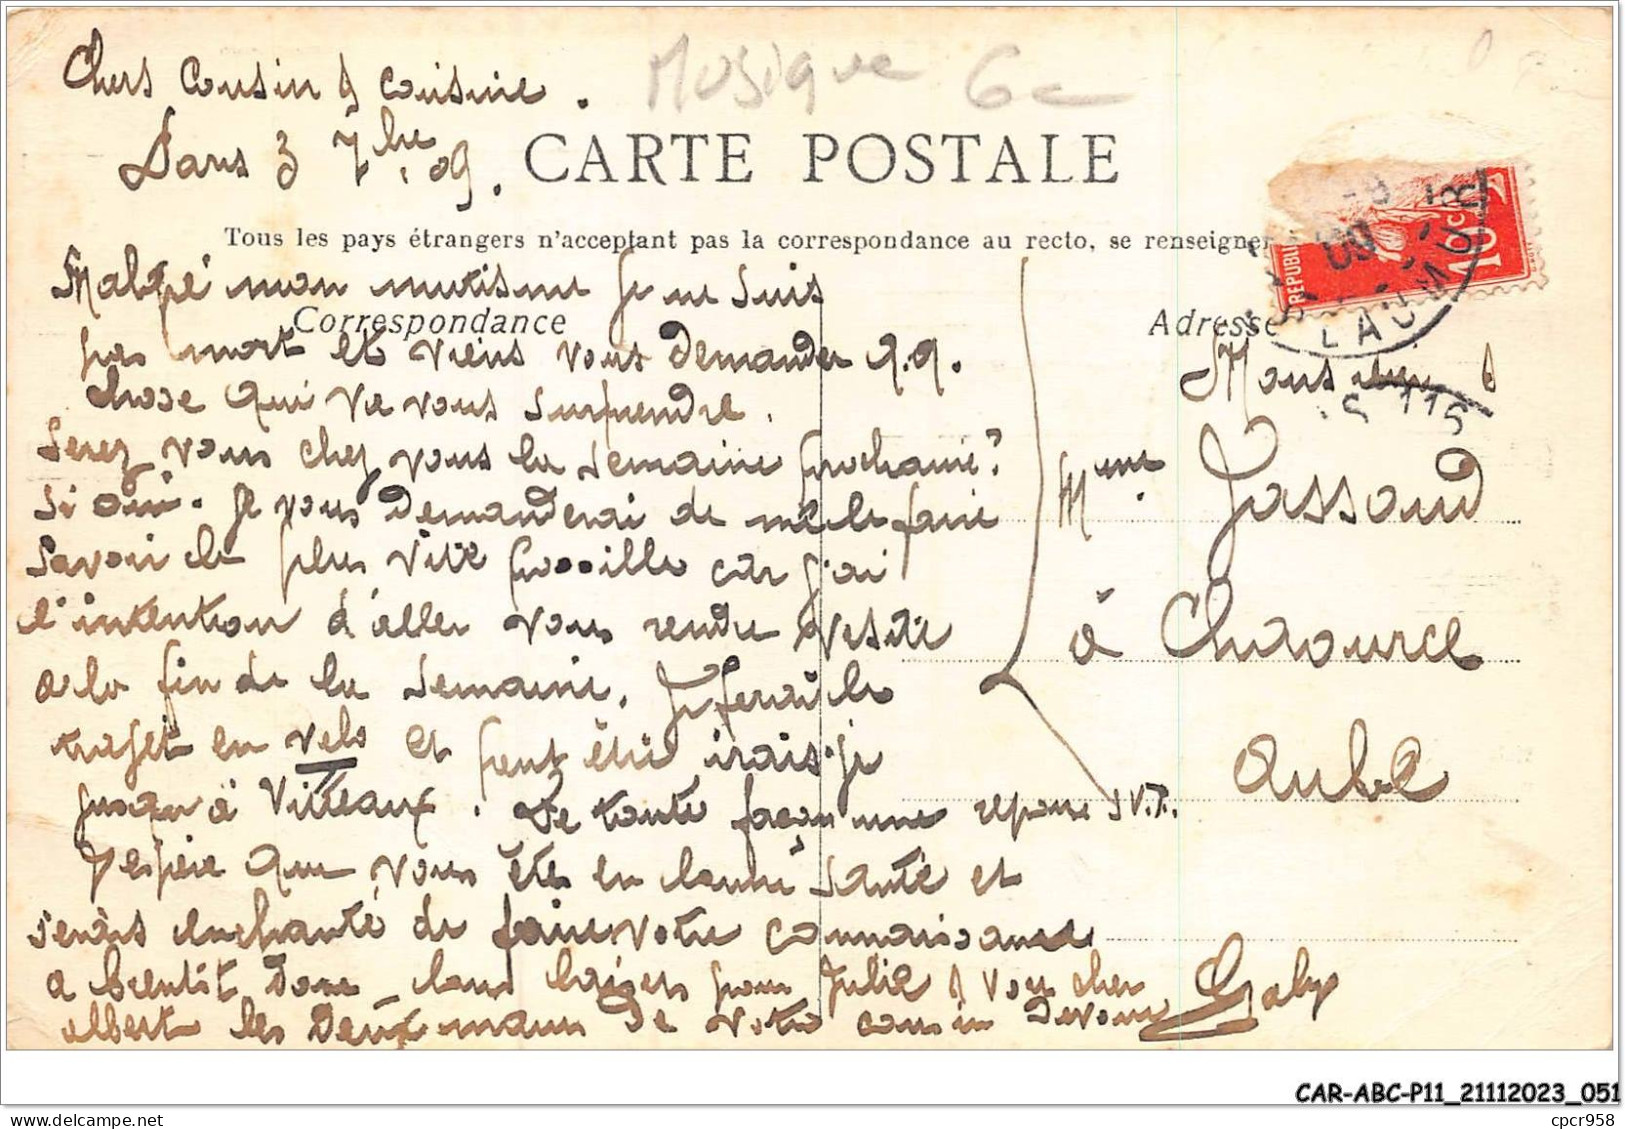 Musique 6e
Chers Cousin & cousine.
Paris 3 7bre 09.
CARTE POSTALE
Tous les pays étrangers n'acceptant pas la correspondance au recto, se renseigner
Correspondance
Adresse
REPUBLI
10c
09
LAUMUR
115
Malgré mon mutisme je ne suis
pas mort et viens vous demander q.q.
chose qui va vous surprendre.
Serez vous chez vous la semaine prochaine?
Si oui. Je vous demanderai de me le faire
savoir le plus vite possible car j'ai
l'intention d'aller vous rendre visite
a la fin de la semaine. Je ferai le
trajet en velo et peut être irais-je
jusqu'à Vitteaux. De toute façon une reponse S.V.P.
J'espère que vous êtes en bonne santé et
serais enchanté de faire votre connaissance
a bientôt donc bons baisers pour Julie & vous cher
albert les deux mains de votre cousin devoué Gaby
Monsieur &
Mme Jassaud
à Chaource
Aube
CAR-ABC-P11_21112023_051
delcampe.net
cpcr958